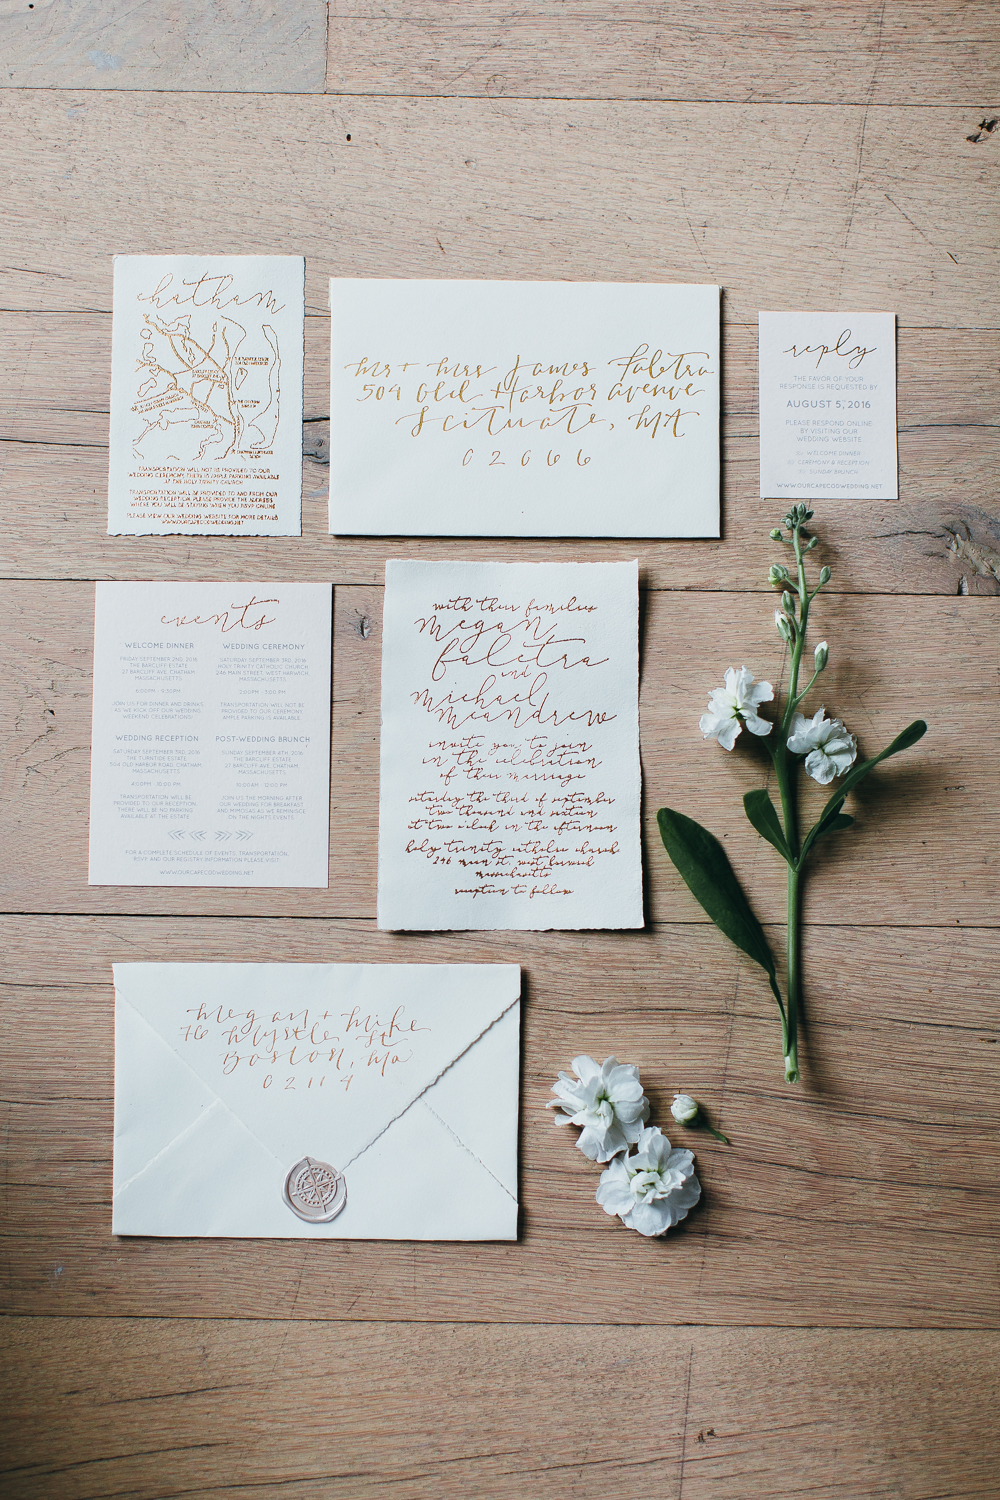 chatham
TRANSPORTATION WILL NOT BE PROVIDED TO OUR
WEDDING CEREMONY. THERE IS AMPLE PARKING AVAILABLE
AT THE HOLY TRINITY CHURCH
TRANSPORTATION WILL BE PROVIDED TO AND FROM OUR
WEDDING RECEPTION. PLEASE PROVIDE THE ADDRESS
WHERE YOU WILL BE STAYING WHEN YOU RSVP ONLINE
PLEASE VIEW OUR WEDDING WEBSITE FOR MORE DETAILS
WWW.OURCAPECODWEDDING.NET
Mr + Mrs James Faletra
504 Old Harbor Avenue
Scituate, MA
02066
reply
THE FAVOR OF YOUR
RESPONSE IS REQUESTED BY
AUGUST 5, 2016
PLEASE RESPOND ONLINE
BY VISITING OUR
WEDDING WEBSITE
WELCOME DINNER
CEREMONY & RECEPTION
SUNDAY BRUNCH
WWW.OURCAPECODWEDDING.NET
events
WELCOME DINNER
FRIDAY SEPTEMBER 2ND, 2016
THE BARCLIFF ESTATE
27 BARCLIFF AVE, CHATHAM,
MASSACHUSETTS
6:00PM - 9:30PM
JOIN US FOR DINNER AND DRINKS
AS WE KICK OFF OUR WEDDING
WEEKEND CELEBRATIONS!
WEDDING CEREMONY
SATURDAY SEPTEMBER 3RD, 2016
HOLY TRINITY CATHOLIC CHURCH
246 MAIN STREET, WEST HARWICH,
MASSACHUSETTS
2:00PM - 3:00 PM
TRANSPORTATION WILL NOT BE
PROVIDED TO OUR CEREMONY.
AMPLE PARKING IS AVAILABLE
WEDDING RECEPTION
SATURDAY SEPTEMBER 3RD, 2016
THE TURNTIDE ESTATE
504 OLD HARBOR ROAD, CHATHAM,
MASSACHUSETTS
4:00PM - 10:00 PM
TRANSPORTATION WILL BE
PROVIDED TO OUR RECEPTION.
THERE WILL BE NO PARKING
AVAILABLE AT THE ESTATE
POST-WEDDING BRUNCH
SUNDAY SEPTEMBER 4TH, 2016
THE BARCLIFF ESTATE
27 BARCLIFF AVE, CHATHAM,
MASSACHUSETTS
10:00AM - 12:00 PM
JOIN US THE MORNING AFTER
OUR WEDDING FOR BREAKFAST
AND MIMOSAS AS WE REMINISCE
ON THE NIGHT'S EVENTS
FOR A COMPLETE SCHEDULE OF EVENTS, TRANSPORTATION,
RSVP AND OUR REGISTRY INFORMATION PLEASE VISIT:
WWW.OURCAPECODWEDDING.NET
with their families
megan
faletra
and
michael
mcandrew
invite you to join
in the celebration
of their marriage
saturday the third of september
two thousand and sixteen
at two o'clock in the afternoon
holy trinity catholic church
246 main st. west harwich
massachusetts
reception to follow
Megan + Mike
76 Myrtle St
Boston, Ma
02114